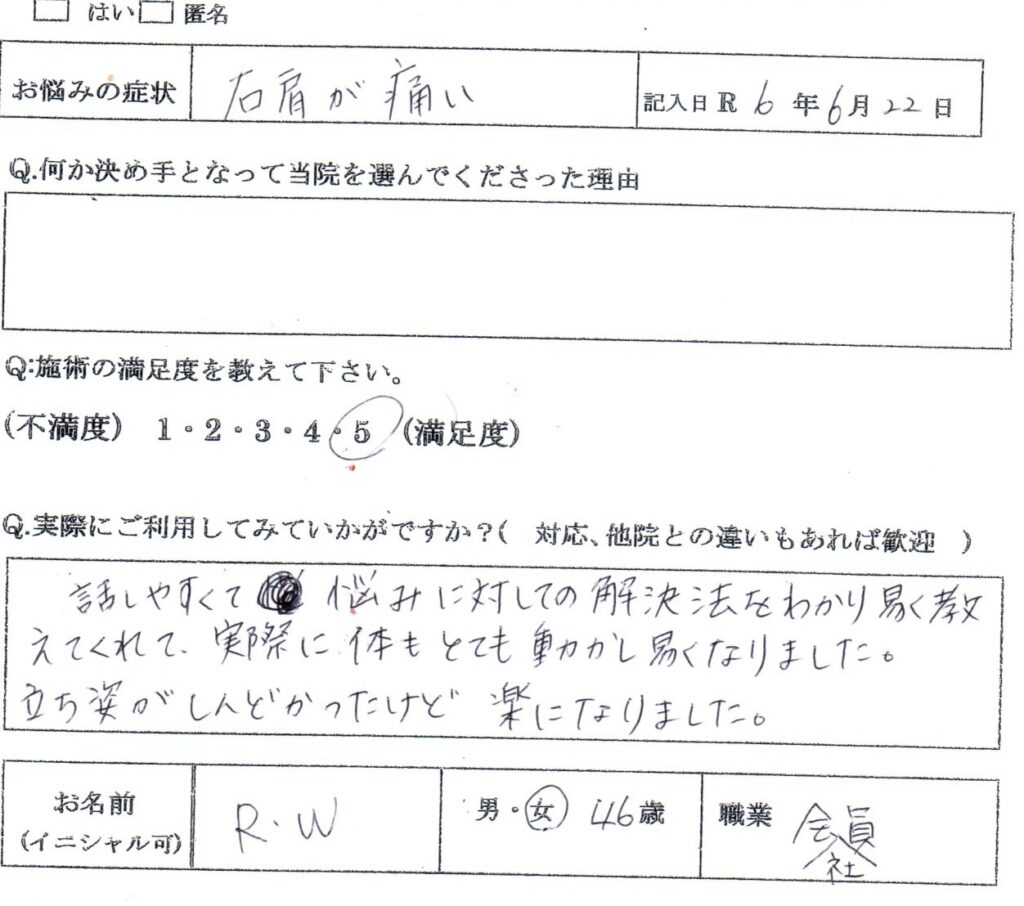 □ はい □ 匿名
お悩みの症状 右肩が痛い 記入日 R 6 年 6 月 22 日
Q.何か決め手となって当院を選んでくださった理由
Q:施術の満足度を教えて下さい。
(不満度) 1・2・3・4・5 (満足度)
Q.実際にご利用してみていかがですか?( 対応、他院との違いもあれば歓迎 )
話しやすくて 悩みに対しての解決法をわかり易く教
えてくれて、実際に体もとても動かし易くなりました。
立ち姿がしんどかったけど 楽になりました。
お名前 R.W 男・女 46歳 職業 会社員
(イニシャル可)